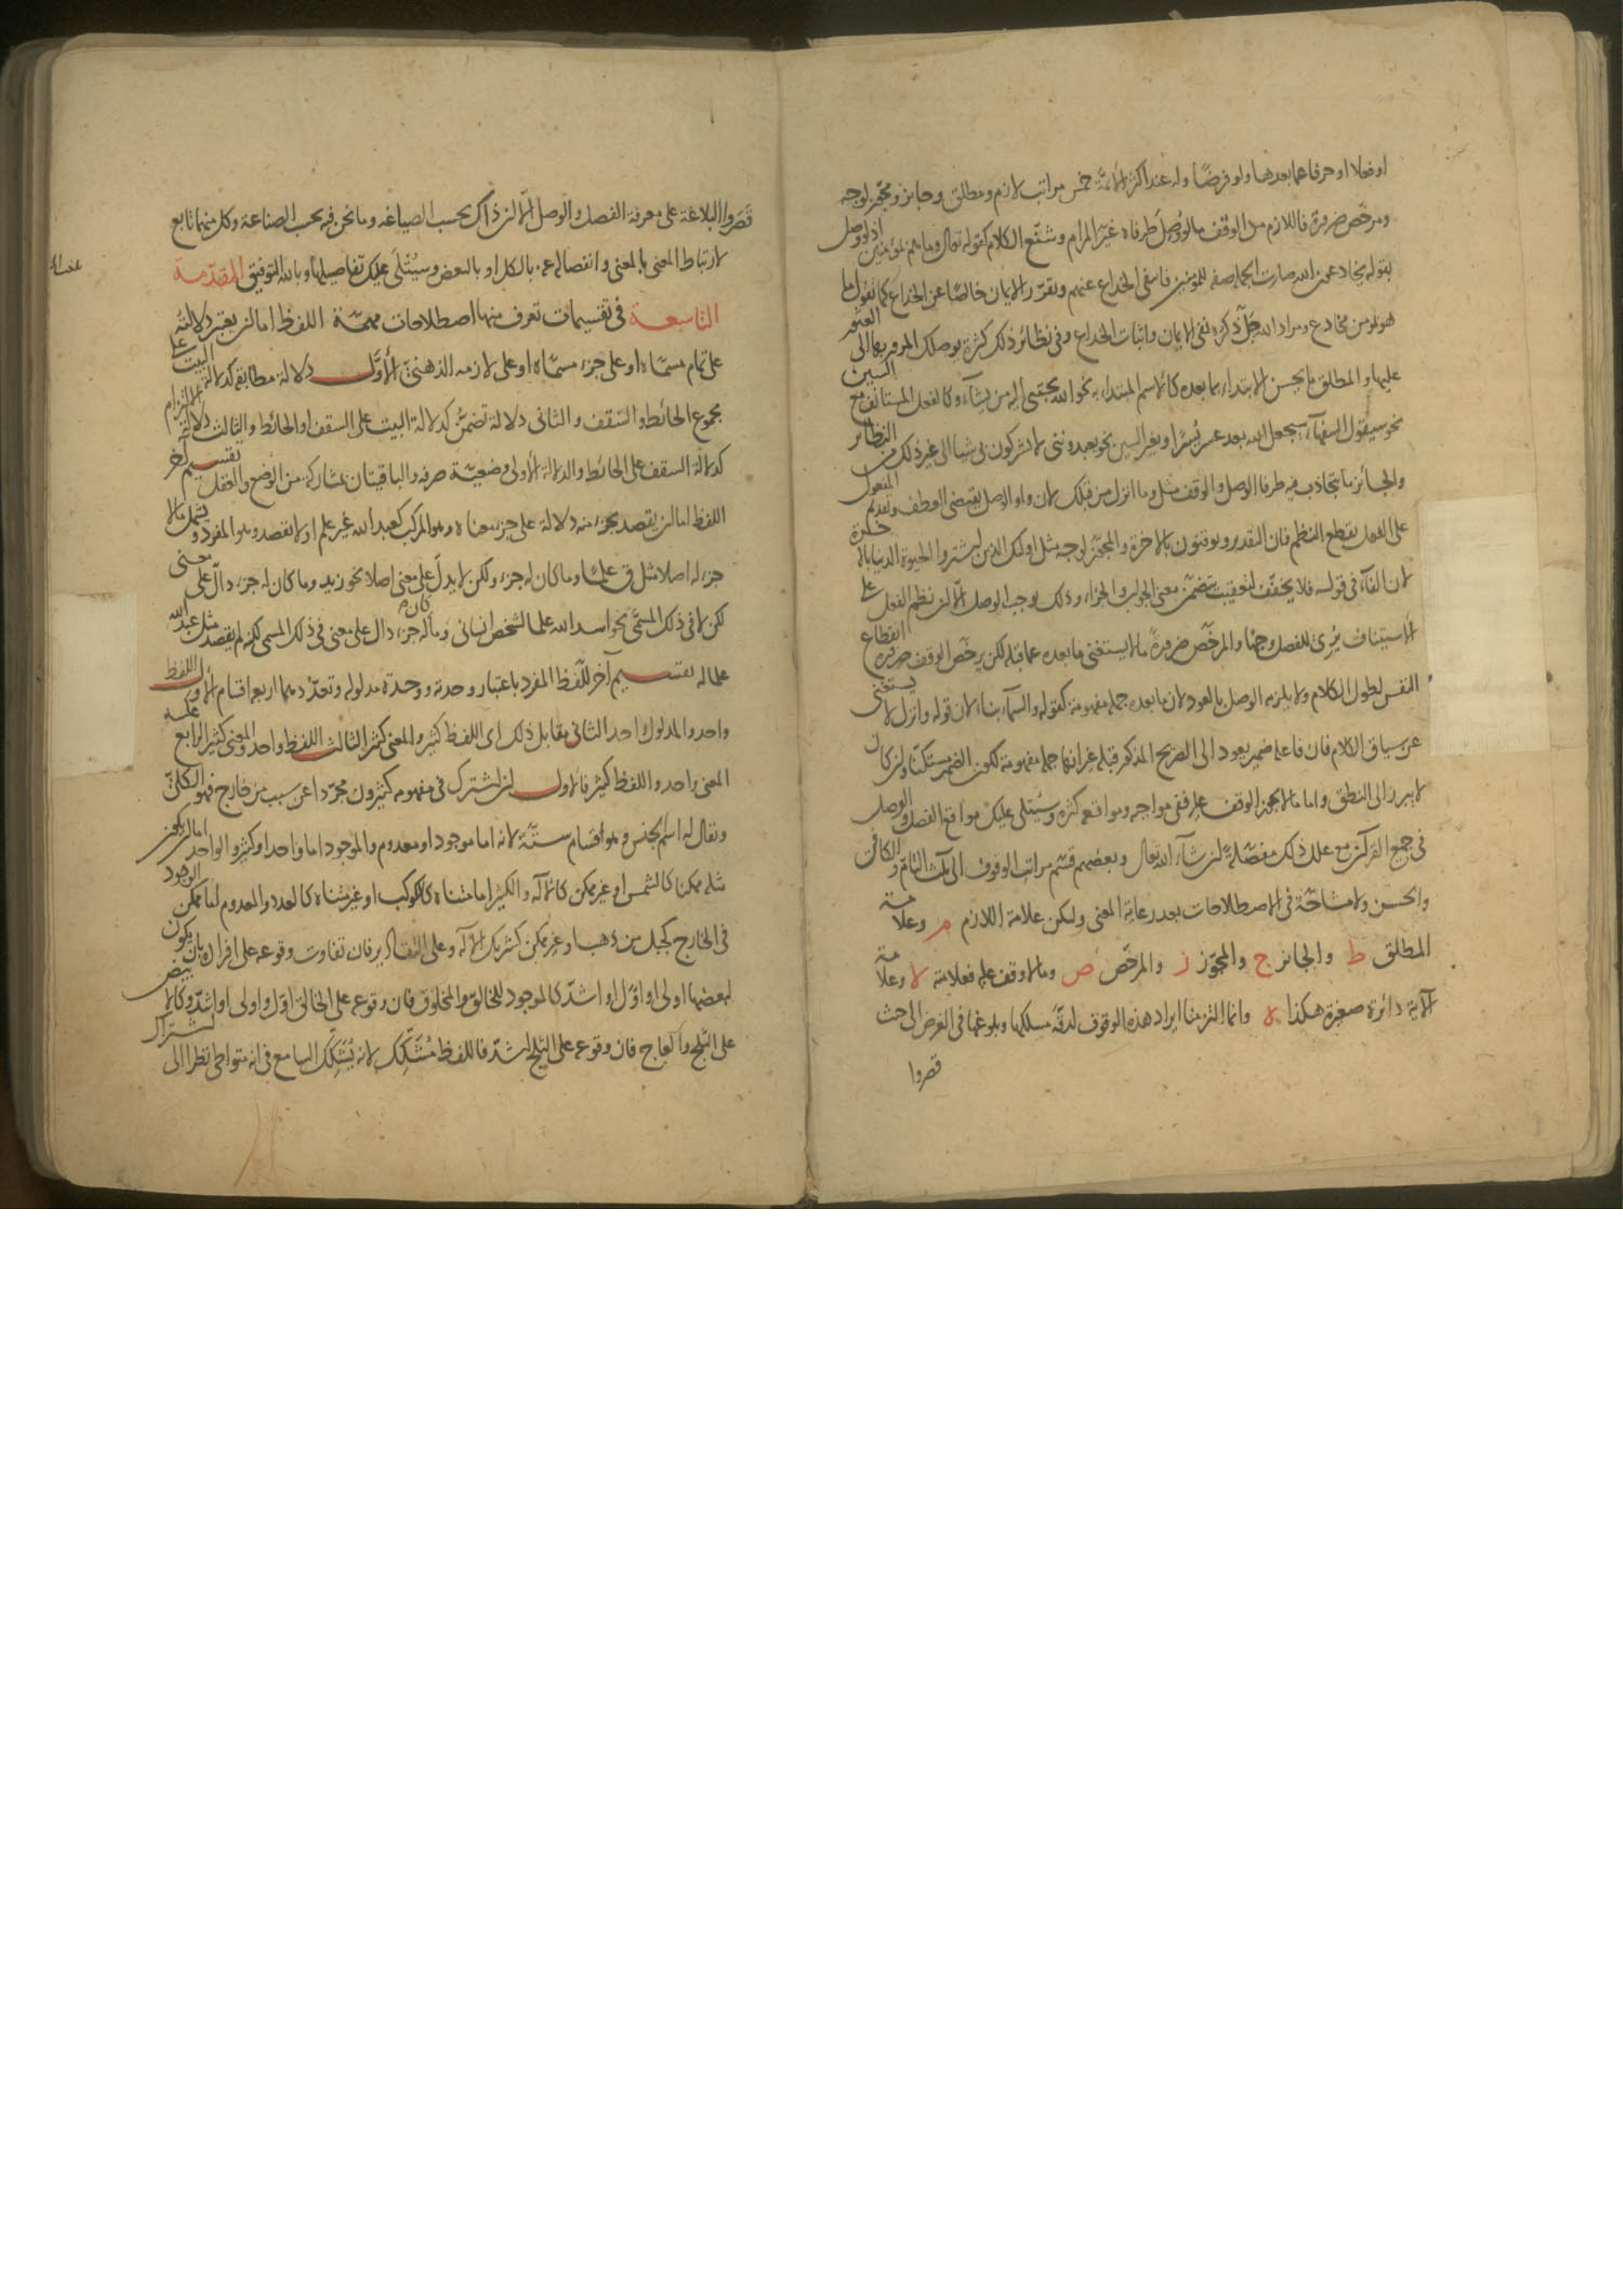 او فعلا او حرفا هما بعدها ولو فرضا وله عند اكثر الائمة خمس مراتب لازم ومطلق وجايز ومجوز لوجه
ومرخص ضرورة فاللازم من الوقف ما لو وصل طرفاه غير المرام وشنع الكلام كقوله تعالى وما هم بمؤمنين اذ لو وصل
بقوله يخادعون الله صارت الجملة صفة للمؤمنين فانتفى الخداع عنهم وتقرر الايمان خالصا عن الخداع كما تقول ما
هو بمؤمن مخادع ومراد الله جل ذكره نفي الايمان واثبات الخداع وفى نظائر ذلك كثرة يوصلك المرور بها الى العثور
عليها والمطلق ما يحسن الابتداء بما بعده كالاسم المبتداء به نحو الله يجتبي اليه من يشآء وكالفعل المستانف مع السين
نحو سيقول السفهآء سيجعل الله بعد عسر يسرا وبغير السين نحو يعبدونني لا يشركون بي شيئا الى غير ذلك من النظائر
والجائز ما يتجاذب فيه طرفا الوصل والوقف مثل وما انزل من قبلك لان واو الوصل يقتضي العطف وتقديم المفعول
على الفعل يقطع النظم فان التقدير ويوقنون بالاخرة والمجوز لوجه مثل اولئك الذين اشتروا الحيوة الدنيا بالاخرة
لان الفآء فى قوله فلا يخفف لتعقيب يتضمن معنى الجواب والجزاء وذلك يوجب الوصل الا ان نظم الفعل على
الاستيناف يري للفصل وجها والمرخص ضرورة ما لا يستغنى ما بعده عما قبله لكن يرخص الوقف ضرورة انقطاع
النفس لطول الكلام ولا يلزمه الوصل بالعود لان ما بعده جملة مفهومة كقوله والسمآء بناء لان قوله وانزل لا يستغنى
عن سياق الكلام فان فاعله ضمير يعود الى الصريح المذكور قبله غير انها جملة مفهومة لكون الضمير مستكنا وان كان
لا يبرز الى النطق واما ما لا يجوز الوقف عليه ففي مواجه ومواقعه كثرة وسيتلى عليك مواقع الفصل والوصل
فى جميع القرآن مع علل ذلك مفصلة ان شآء الله تعالى وبعضهم قسم مراتب الوقوف الى ثلث التام والكافى
والحسن ولا مشاحة فى الاصطلاحات بعد رعاية المعنى وليكن علامة اللازم م وعلامة
المطلق ط والجايز ج والمجوز ز والمرخص ص وما لا وقف عليه فعلامته لا وعلامة
الآية دائرة صغيرة هكذا ه وانما التزمنا ايراد هذه الوقوف لدقة مسلكها وبلوغها فى الغرض الى حيث
قصروا
قصروا البلاغة على معرفة الفصل والوصل الا ان ذاك بحسب الصياغة وما نحن فيه بحسب الصناعة وكل منهما تابع
لارتباط المعنى بالمعنى وانفصاله عنه بالكل او بالبعض وسيتلى عليك تفاصيلها وبالله التوفيق المقدمة
التاسعة فى تقسيمات تعرف منها اصطلاحات مهمة اللفظ اما ان يعتبر دلالته
على تمام مسماه او على جزء مسماه او على لازمه الذهني الاول دلالة مطابقة كدلالة البيت على
مجموع الحائط والسقف والثانى دلالة تضمن كدلالة البيت على السقف او الحائط والثالث دلالة التزام
كدلالة السقف على الحائط والدلالة الاولى وضعية صرفه والباقيتان بمشاركة من الوضع والعقل تقسيم آخر
اللفظ اما ان يقصد بجزء منه دلالة على جزء معناه وهو المركب كعبد الله غير علم او لا يقصد وهو المفرد ويشمل ما لا
جزء له اصلا مثل ق علما وما كان له جزء ولكن لا يدل على معنى اصلا نحو زيد وما كان له جزء دال على معنى
لكن لا فى ذلك المسمى نحو اسد الله علما لشخص انسانى وما كان له جزء دال على معنى فى ذلك المسمى لكن لم يقصد مثل عبد الله
علما له تقسيم آخر للفظ المفرد باعتبار وحدته ووحدة مدلوله وتعددهما اربعة اقسام الاول اللفظ
واحد والمدلول واحد الثانى مقابل ذلك اى اللفظ كثير والمعنى كثير الثالث اللفظ واحد والمعنى كثير الرابع عكسه
المعنى واحد واللفظ كثير فالاول ان اشترك فى مفهومه كثيرون مجردا عن سبب من خارج فهو الكلى
ويقال له اسم الجنس وهو اقسام ستة لانه اما موجود او معدوم والموجود اما واحد او كثير والواحد اما ان يكون
مثله ممكن كالشمس او غير ممكن كالاله والكثير اما متناه كالكوكب او غير متناه كالعدد والمعدوم اما ممكن الوجود
فى الخارج كجبل من ذهب او غير ممكن كشريك الاله وعلى التقادير فان تفاوت وقوعه على افراده بان يكون
لبعضها اولى او اول او اشد كالموجود للخالق والمخلوق فان وقوعه على الخالق اول واولى او اشد وكالابيض
على الثلج والعاج فان وقوعه على الثلج اشد فاللفظ مشكك لانه يشكك السامع فى انه متواطئ نظرا الى اشتراك